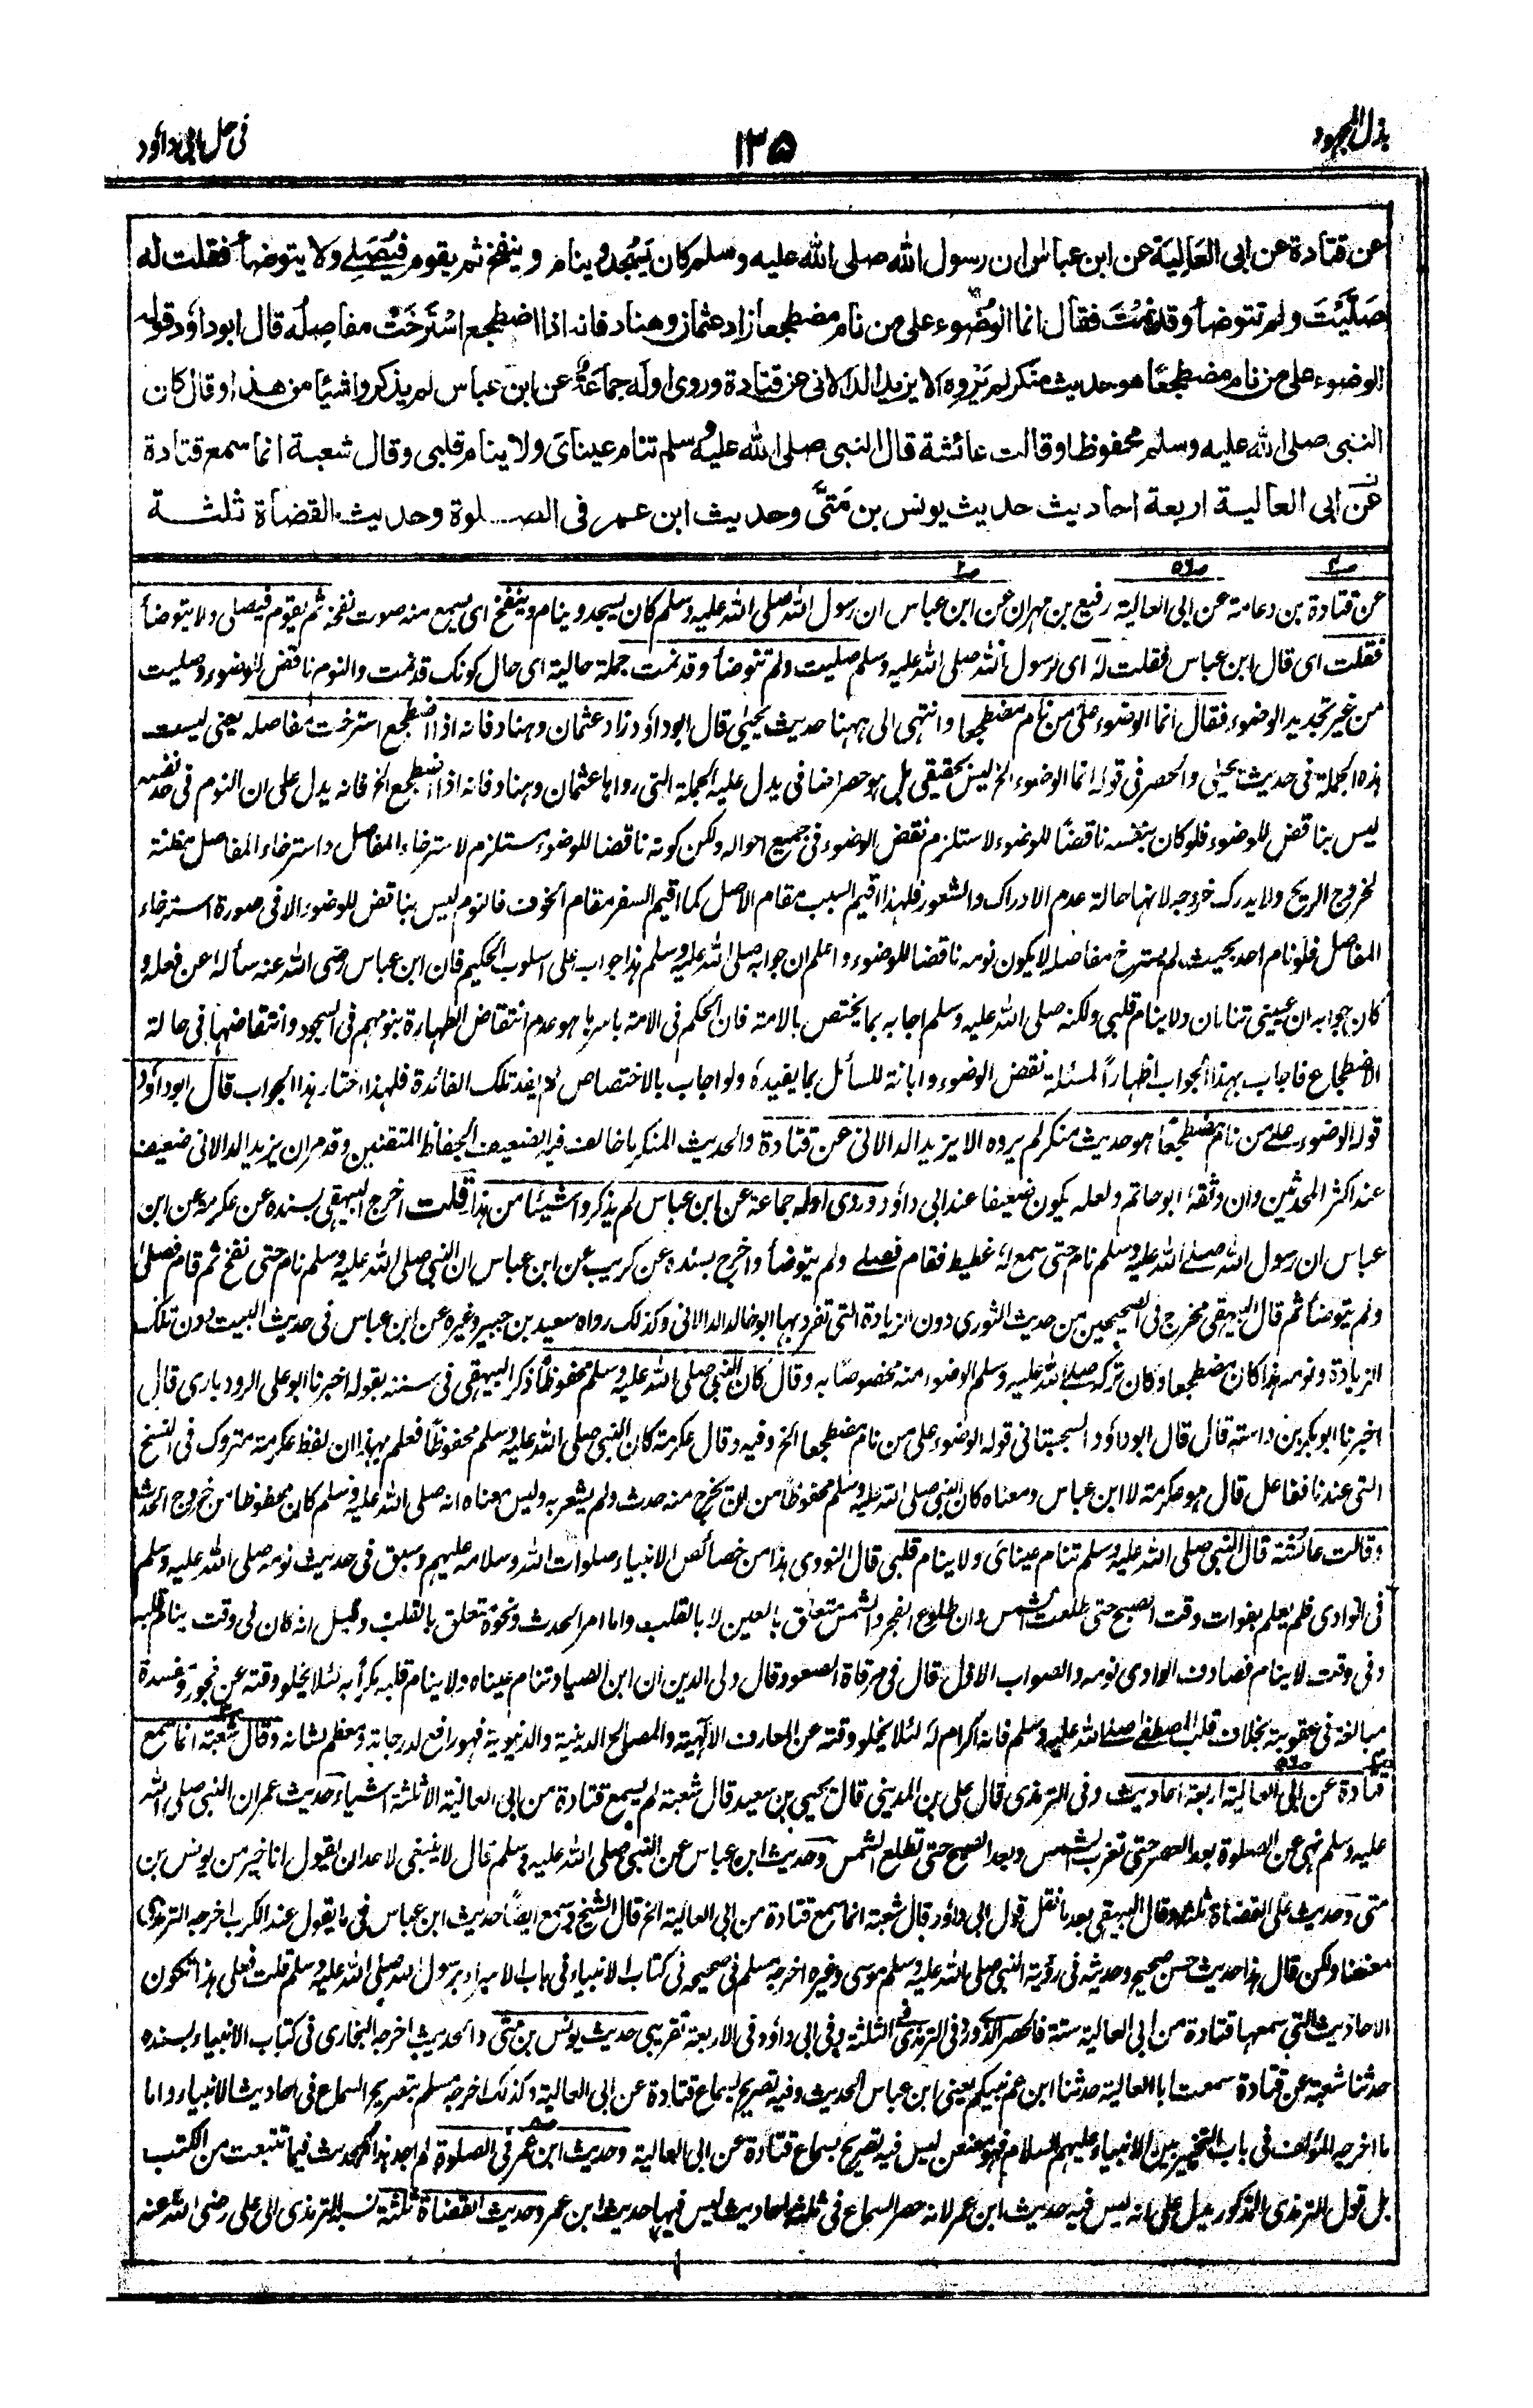 بذل المجهود
١٣٥
فى حل ابى داؤد
عن قتادة عن ابى العَالِيَة عن ابن عباس ان رسول الله صلى الله عليه وسلم كان يَسْجُد وينام وينفخ ثم يقوم فيُصَلِّے ولا يتوضأ فقلت له
صَلَّيْتَ ولم تتوضأ وقد نِمْتَ فقال انما الوُضُوء على من نام مضطجعا زاد عثمان وهناد فانه اذا اضطجع اسْتَرخَتْ مفاصِلُه قال ابو داؤد قوله
الوضوء على من نام مضطجعًا هو حديث منكر لم يَرْوِه الا يزيد الدالانى عن قتادة وروى اوله جماعَةٌ عن ابن عباس لم يذكروا شيئا من هذا وقال كان
النبى صلى الله عليه وسلم محفوظا وقالت عائشة قال النبى صلى الله عليه وسلم تنام عيناىَ ولا ينام قلبى وقال شعبة انما سمع قتادة
عن ابى العالية اربعة احاديث حديث يونس بن مَتّٰى وحديث ابن عمر فى الصلوة وحديث القضاة ثلثة
عن قتادة بن دعامة عن ابى العالية رفيع بن مهران عن ابن عباس ان رسول الله صلى الله عليه وسلم كان يسجد وينام وينفخ اى يسمع منه صوت نفخه ثم يقوم فيصلى ولا يتوضأ
فقلت اى قال ابن عباس فقلت لہ اى لرسول الله صلى الله عليه وسلم صليت ولم تتوضأ وقد نمت جملة حالية اى حال كونك قد نمت والنوم ناقض للوضوء وصليت
من غير تجديد الوضوء فقال انما الوضوء على من نام مضطجعا وانتهى الى ههنا حديث يحيىٰ قال ابو داؤد زاد عثمان وهناد فانه اذا اضطجع استرخت مفاصله يعنى ليست
هذه الجملة فى حديث يحيىٰ والحصر فى قوله انما الوضوء الخ ليس بحقيقى بل هو حصر اضافى يدل عليه الجملة التى رواها عثمان وهناد فانه اذا اضطجع الخ فانه يدل على ان النوم فى حد نفسه
ليس بناقض للوضوء فلو كان بنفسه ناقضًا للوضوء لاستلزم نقض الوضوء فى جميع احواله ولكن كونه ناقضا للوضوء مستلزم لاسترخاء المفاصل واسترخاء المفاصل مظنة
لخروج الريح ولا يدرك خروجه لانها حالة عدم الادراك والشعور فلهذا اقيم السبب مقام الاصل كما اقيم السفر مقام الخوف فالنوم ليس بناقض للوضوء الا فى صورة استرخاء
المفاصل فلو نام احد بحيث لم يسترخ مفاصله لا يكون نومه ناقضا للوضوء واعلم ان جوابه صلى الله عليه وسلم هذا جواب على اسلوب الحكيم فان ابن عباس رضى الله عنه سأله عن فعله و
كان جوابه ان عينى تنامان ولا ينام قلبى ولكنه صلى الله عليه وسلم اجابه بما يختص بالامة فان الحكم فى الامة باسرها هو عدم انتقاض الطهارة بنومهم فى السجود وانتقاضها فى حالة
الاضطجاع فاجاب بهذا الجواب اظهاراً لمسئلة نقض الوضوء وابانة للسائل بما يفيده ولو اجاب بالاختصاص لم يفد تلك الفائدة فلهذا اختار هذا الجواب قال ابو داؤد
قوله الوضوء على من نام مضطجعًا هو حديث منكر لم يروه الا يزيد الدالانى عن قتادة والحديث المنكر ما خالف فيه الضعيف الحفاظ المتقنين وقد مر ان يزيد الدالانى ضعيف
عند اكثر المحدثين وان وثقه ابو حاتم ولعله يكون ضعيفا عند ابى داؤد وروى اوله جماعة عن ابن عباس لم يذكروا شيئا من هذا قلت اخرج البيهقى بسنده عن عكرمة عن ابن
عباس ان رسول الله صلے الله عليه وسلم نام حتى سمع لہ غطيط فقام فصلے ولم يتوضأ واخرج بسنده عن كريب عن ابن عباس ان النبى صلى الله عليه وسلم نام حتى نفخ ثم قام فصلىٰ
ولم يتوضأ ثم قال البيهقى مخرج فى الصحيحين من حديث الثورى دون الزيادة التى تفرد بها ابو خالد الدالانى وكذلك رواه سعيد بن جبير وغيره عن ابن عباس فى حديث المبيت دون تلك
الزيادة ونومه هذا كان مضطجعا وكان تركه صلے الله عليه وسلم الوضوء منه مخصوصًا به وقال كان النبى صلى الله عليه وسلم محفوظاً ذكر البيهقى فى سننه بقوله اخبرنا ابو على الرودبارى قال
اخبرنا ابو بكر بن داسة قال قال ابو داؤد السجستانى قوله الوضوء على من نام مضطجعا الخ وفيه وقال عكرمة كان النبى صلى الله عليه وسلم محفوظاً فعلم بهذا ان لفظ عكرمة متروك فى النسخ
التى عندنا ففاعل قال هو عكرمة لا ابن عباس ومعناه كان النبى صلى الله عليه وسلم محفوظاً من ان يخرج منه حدث ولم يشعر به وليس معناه انه صلى الله عليه وسلم كان محفوظا من خروج الحدث
وقالت عائشة قال النبى صلى الله عليه وسلم تنام عيناى ولا ينام قلبى قال النووى هذا من خصائص الانبياء صلوات الله وسلامه عليهم وسبق فى حديث نومه صلى الله عليه وسلم
فى الوادى فلم يعلم بفوات وقت الصبح حتى طلعت الشمس وان طلوع الفجر والشمس متعلق بالعين لا بالقلب واما امر الحدث ونحوه تعلق بالقلب وقيل انه كان فى وقت ينام قلبه
وفى وقت لا ينام فصادف الوادى نومه والصواب الاول قال فى مرقاة الصعود وقال ولى الدين ان ابن الصياد تنام عيناه ولا ينام قلبه مكرأ به لئلا يخلو وقته عن فجور ومفسدة
مبالغة فى عقوبته بخلاف قلب المصطفىٰ صلے الله عليه وسلم فانه اكرام لہ لئلا يخلو وقته عن المعارف الالٰهية والمصالح الدينية والدنيوية فهو رافع لدرجاته ومعظم لشانه وقال شعبة انما سمع
قتادة عن ابى العالية اربعة احاديث وفى الترمذى قال على بن المدينى قال يحيى بن سعيد قال شعبة لم يسمع قتادة من ابى العالية الا ثلثة اشياء حديث عمر ان النبى صلى الله
عليه وسلم نهى عن الصلوة بعد العصر حتى تغرب الشمس وبعد الصبح حتى تطلع الشمس وحديث ابن عباس عن النبى صلى الله عليه وسلم قال لا ينبغى لاحد ان يقول انا خير من يونس بن
متى وحديث على القضاة ثلثة وقال البيهقى بعد ما نقل قول ابى داؤد وقال شعبة انما سمع قتادة من ابى العالية الخ قال الشيخ وسمع ايضاً حديث ابن عباس فى ما يقول عند الكرب اخرجه الترمذى
معنعنا ولكن قال هذا حديث حسن صحيح وحديثه فى رؤية النبى صلى الله عليه وسلم موسى وغيره اخرجه مسلم فى صحيحه فى كتاب الانبياء فى باب الاسراء برسول الله صلى الله عليه وسلم قلت فعلى هذا تكون
الاحاديث التى سمعها قتادة من ابى العالية ستة فالحصر المذكور فى الترمذى فى الثلثة وفى ابى داؤد فى الاربعة تقريبى حديث يونس بن متى والحديث اخرجه البخارى فى كتاب الانبياء بسنده
حدثنا شعبة عن قتادة سمعت ابا العالية حدثنا ابن عم نبيكم يعنى ابن عباس الحديث وفيه تصريح بسماع قتادة عن ابى العالية وكذلك اخرجه مسلم بتصريح السماع فى احاديث الانبياء واما
ما اخرجه المؤلف فى باب التخيير بين الانبياء عليهم السلام فهو معنعن ليس فيه تصريح بسماع قتادة عن ابى العالية وحديث ابن عمر فى الصلوة لم اجد هذا الحديث فيما تتبعت من الكتب
بل قول الترمذى المذكور يدل على انه ليس فيه حديث ابن عمر لانه حصر السماع فى ثلثة احاديث ليس فيها حديث ابن عمر وحديث القضاة ثلثة نسبه الترمذى الى على رضى الله عنه